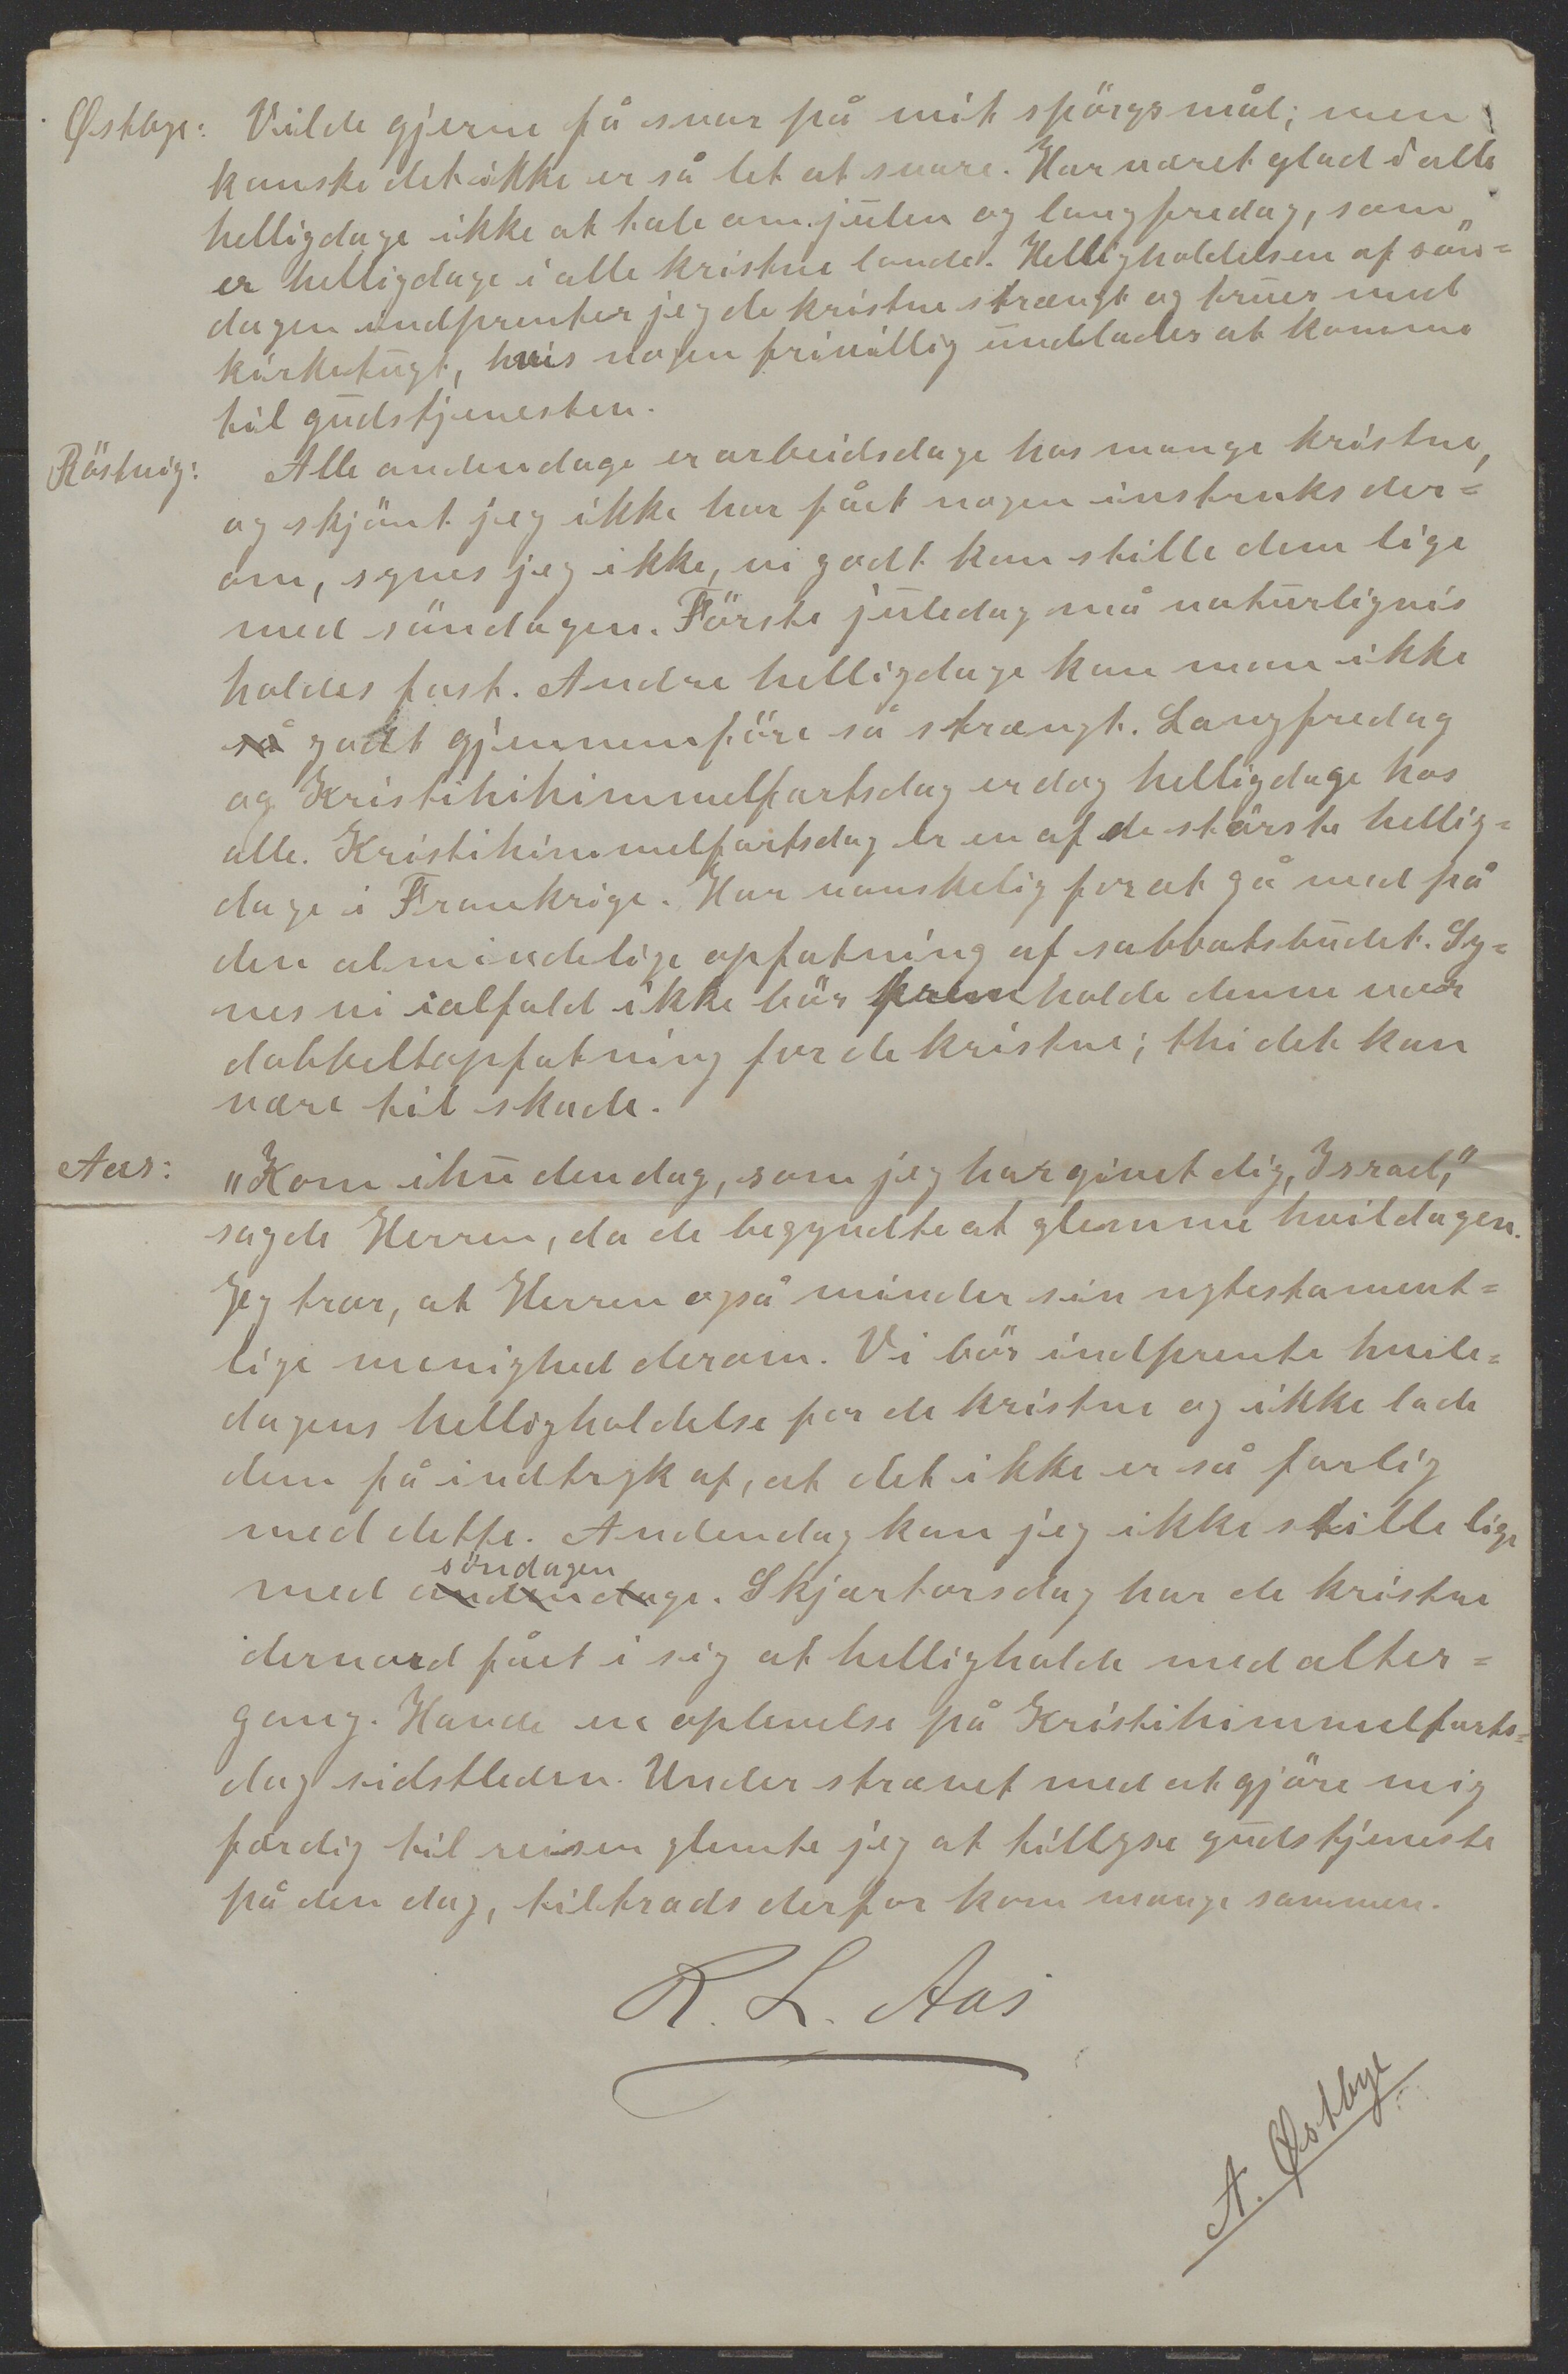 Østbye: Vilde gjerne få svar på mit spörgsmål; men
kanske det ikke er så let at svare. Har været glad i alle
helligdage ikke at tale om julen og langfredag, som
er helligdage i alle kristne lande. Helligholdelsen af sön=
dagen indprenter jeg de kristne strængt og truer med
kirketugt, hvis nogen frivillig undlader at komme
til gudstjenesten.
Röstvig: Alle andendage er arbeidsdage hos mange kristne,
og skjönt jeg ikke har fået nogen instruks der=
om, synes jeg ikke, vi godt kan stille dem lige
med söndagen. Förste juledag må naturligvis
holdes fast. Andre helligdage kan man ikke
så godt gjennemföre så strængt. Langfredag
og Kristihihimmelfartsdag er dog helligdage hos
alle. Kristihimmelfartsdag er en af de störste hellig=
dage i Frankrige. Har vanskelig for at gå med på
den almindelige opfatning af sabbatsbudet. Sy=
nes vi ialfald ikke bör fremholde denne vor
dobbeltopfatning for de kristne; thi det kan
være til skade.
Aas: "Kom ihu den dag, som jeg har givet dig, Israel,"
sagde Herren, da de begyndte at glemme hvildagen.
Jeg tror, at Herren også minder sin nytestament=
lige menighed derom. Vi bör indprente hvile=
dagens helligholdelse for de kristne og ikke lade
dem få indtryk af, at det ikke er så farlig
med dette. Andendag kan jeg ikke stille lige
söndagen
med andendage. Skjærtorsdag har de kristne
dernord fået i sig at helligholde med alter=
gang. Havde en oplevelse på Kristihimmelfarts=
dag sidstleden. Under strævet med at gjöre mig
færdig til reisen glemte jeg at tillyse gudstjeneste
på den dag, tiltrods derfor kom mange sammen.
R. L. Aas
A. Østbye